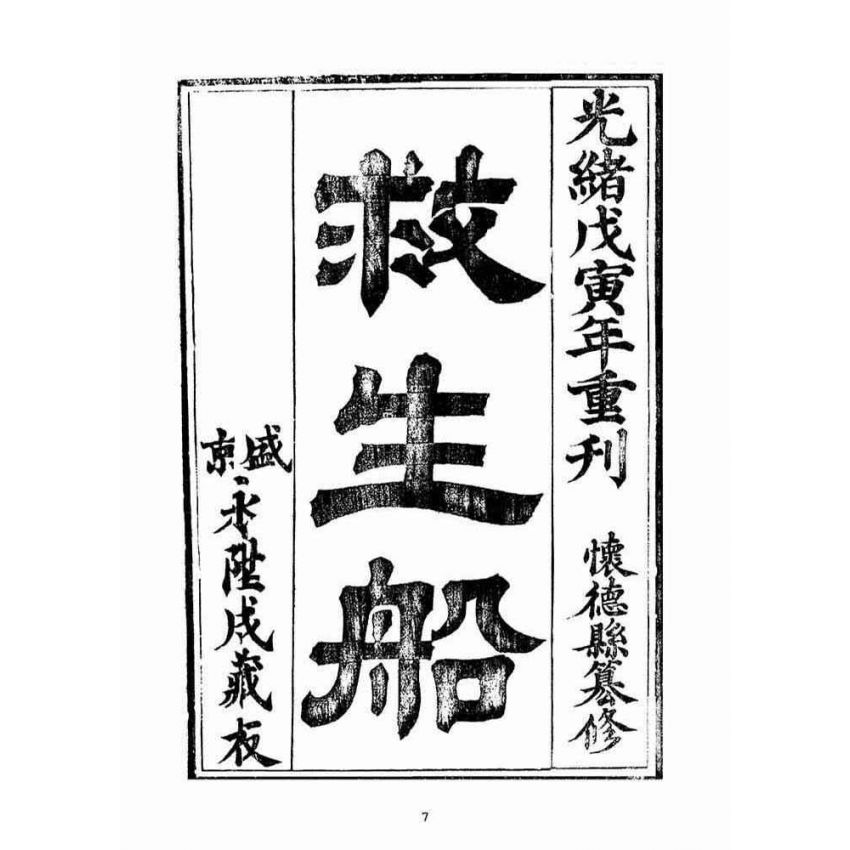 光緒戊寅年重刊 懷德縣纂修
救生船
盛京 永陞成藏板
7